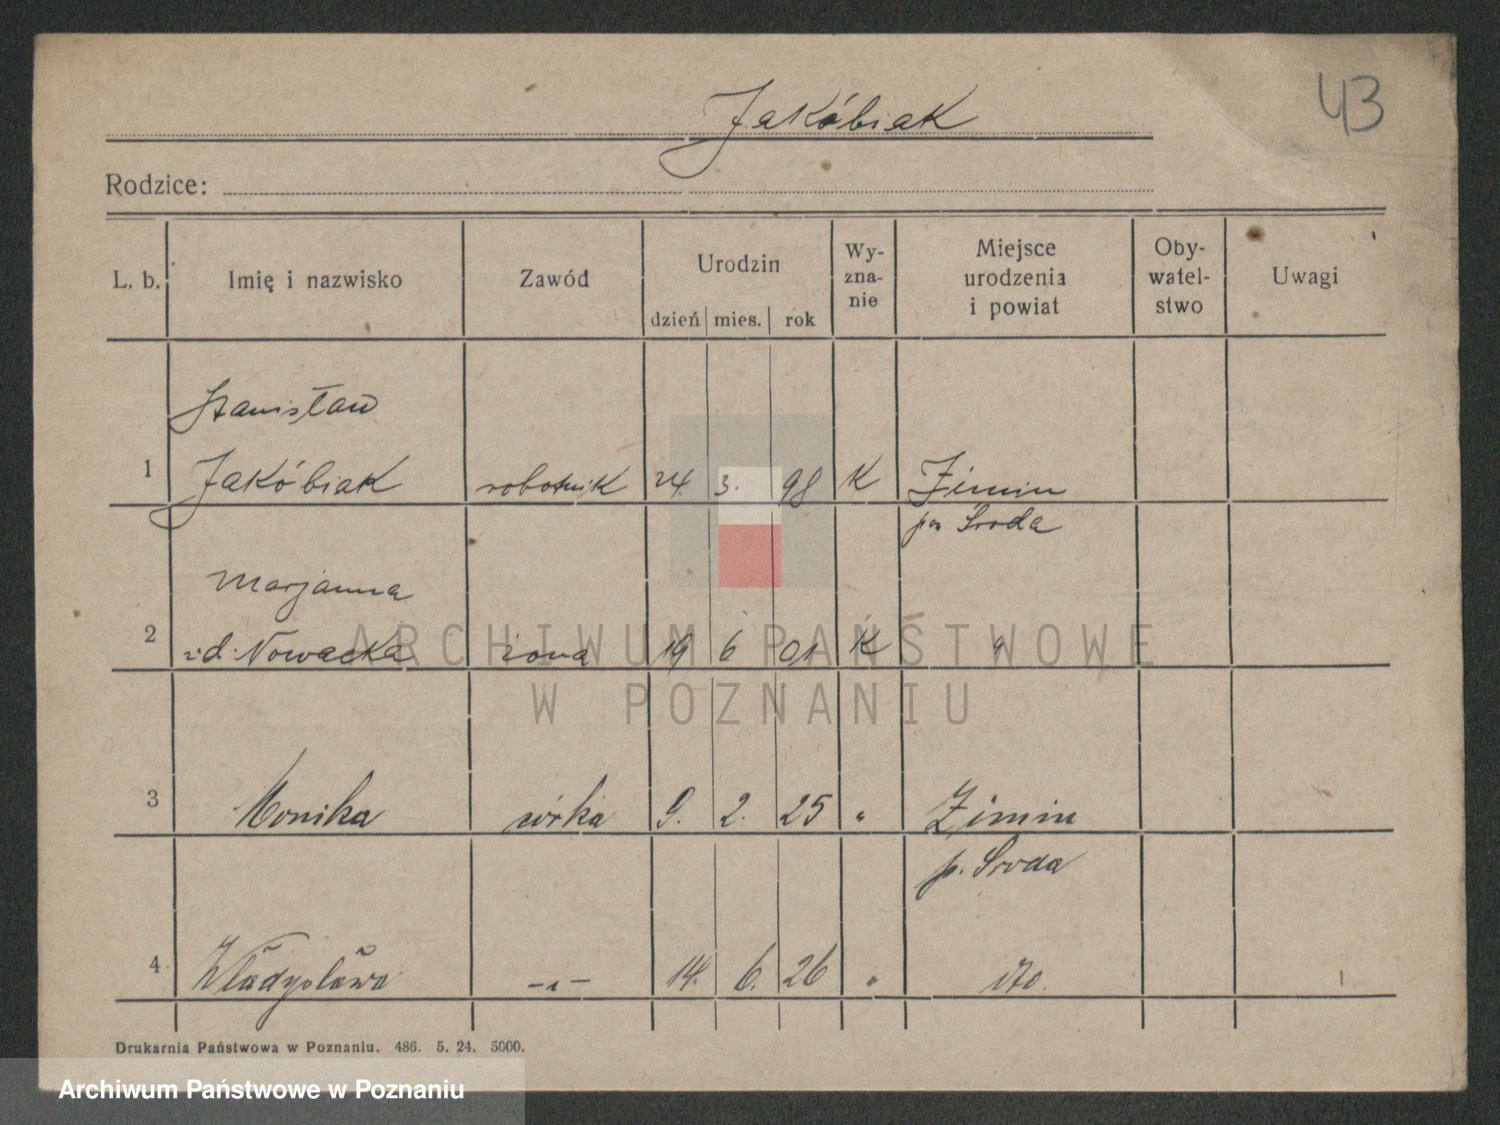 43
Jakóbiak
Rodzice:
L. b. Imię i nazwisko Zawód Urodzin dzień mies. rok Wy-zna-nie Miejsce urodzenia i powiat Oby-watel-stwo Uwagi
Stanisław
1 Jakóbiak robotnik 24. 3. 98 K Zimin
pow Środa
Marjanna
2 z d. Nowacka żona 19 6 01 K "
3 Monika córka 9. 2. 25 " Zimin
p. Środa
4 Władysława -"- 14. 6. 26 " dto.
Drukarnia Państwowa w Poznaniu. 486. 5. 24. 5000.
ARCHIWUM PAŃSTWOWE
W POZNANIU
Archiwum Państwowe w Poznaniu